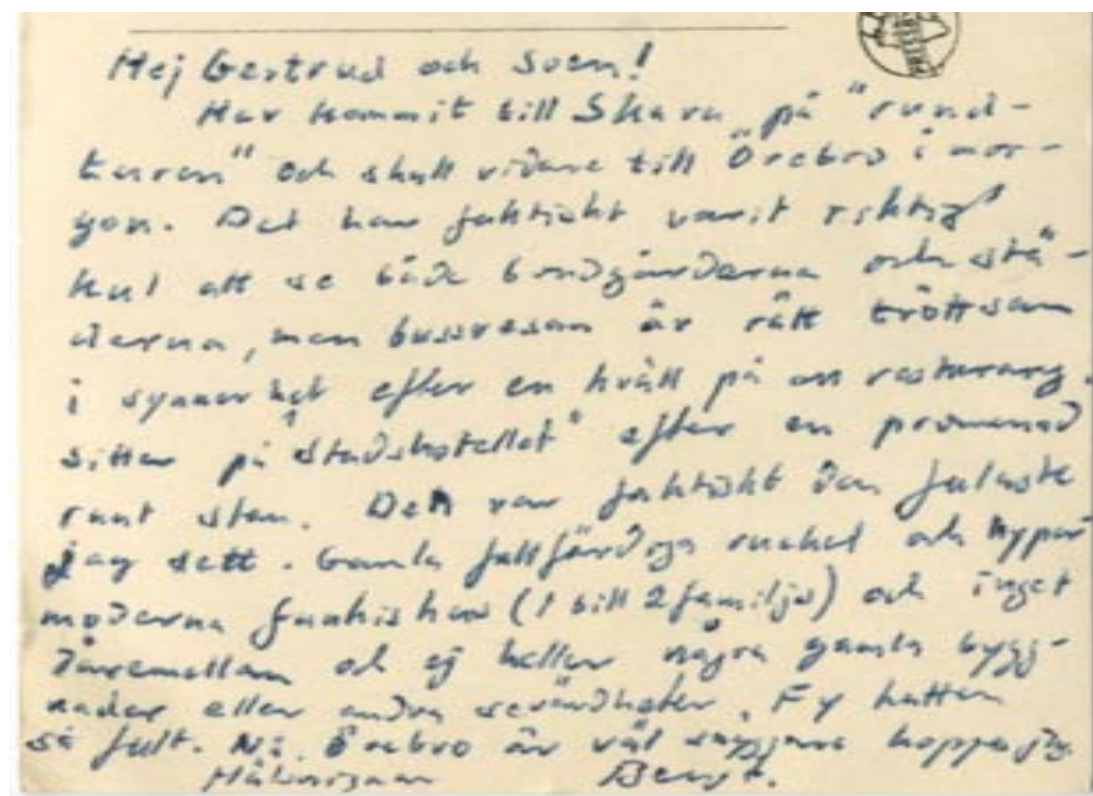 Hej Gertrud och Sven!
Har kommit till Skara på "rund-
turen" och skall vidare till Örebro i mor-
gon. Det har faktiskt varit riktigt
kul att se både bondgårderna och stä-
derna, men bussresan är rätt tröttsam
i synnerhet efter en kväll på en resturang.
Sitter på "Stadshotellet" efter en promenad
runt stan. Den var faktiskt den fulaste
jag sett. Gamla fallfärdiga ruckel och hyper
moderna funkishus (1 till 2 familjs) och inget
däremellan och ej heller några gamla bygg-
nader eller andra sevärdheter. Fy katten
så fult. Nå, Örebro är väl snyggare hoppas jag.
Hälsningar Bengt.
PRESSBY